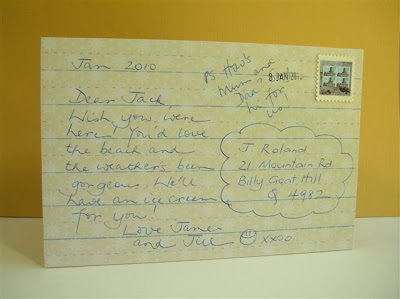 Jan 2010
Dear Jack,
Wish you were
here! You'd love
the beach and
the weather's been
gorgeous. We'll
have an ice cream
for you!
Love James
and Jill xxoo
PS
Mum and
for
8 JAN 2010
J. Roland
21 Mountain Rd
Billy Goat Hill
Q 4982